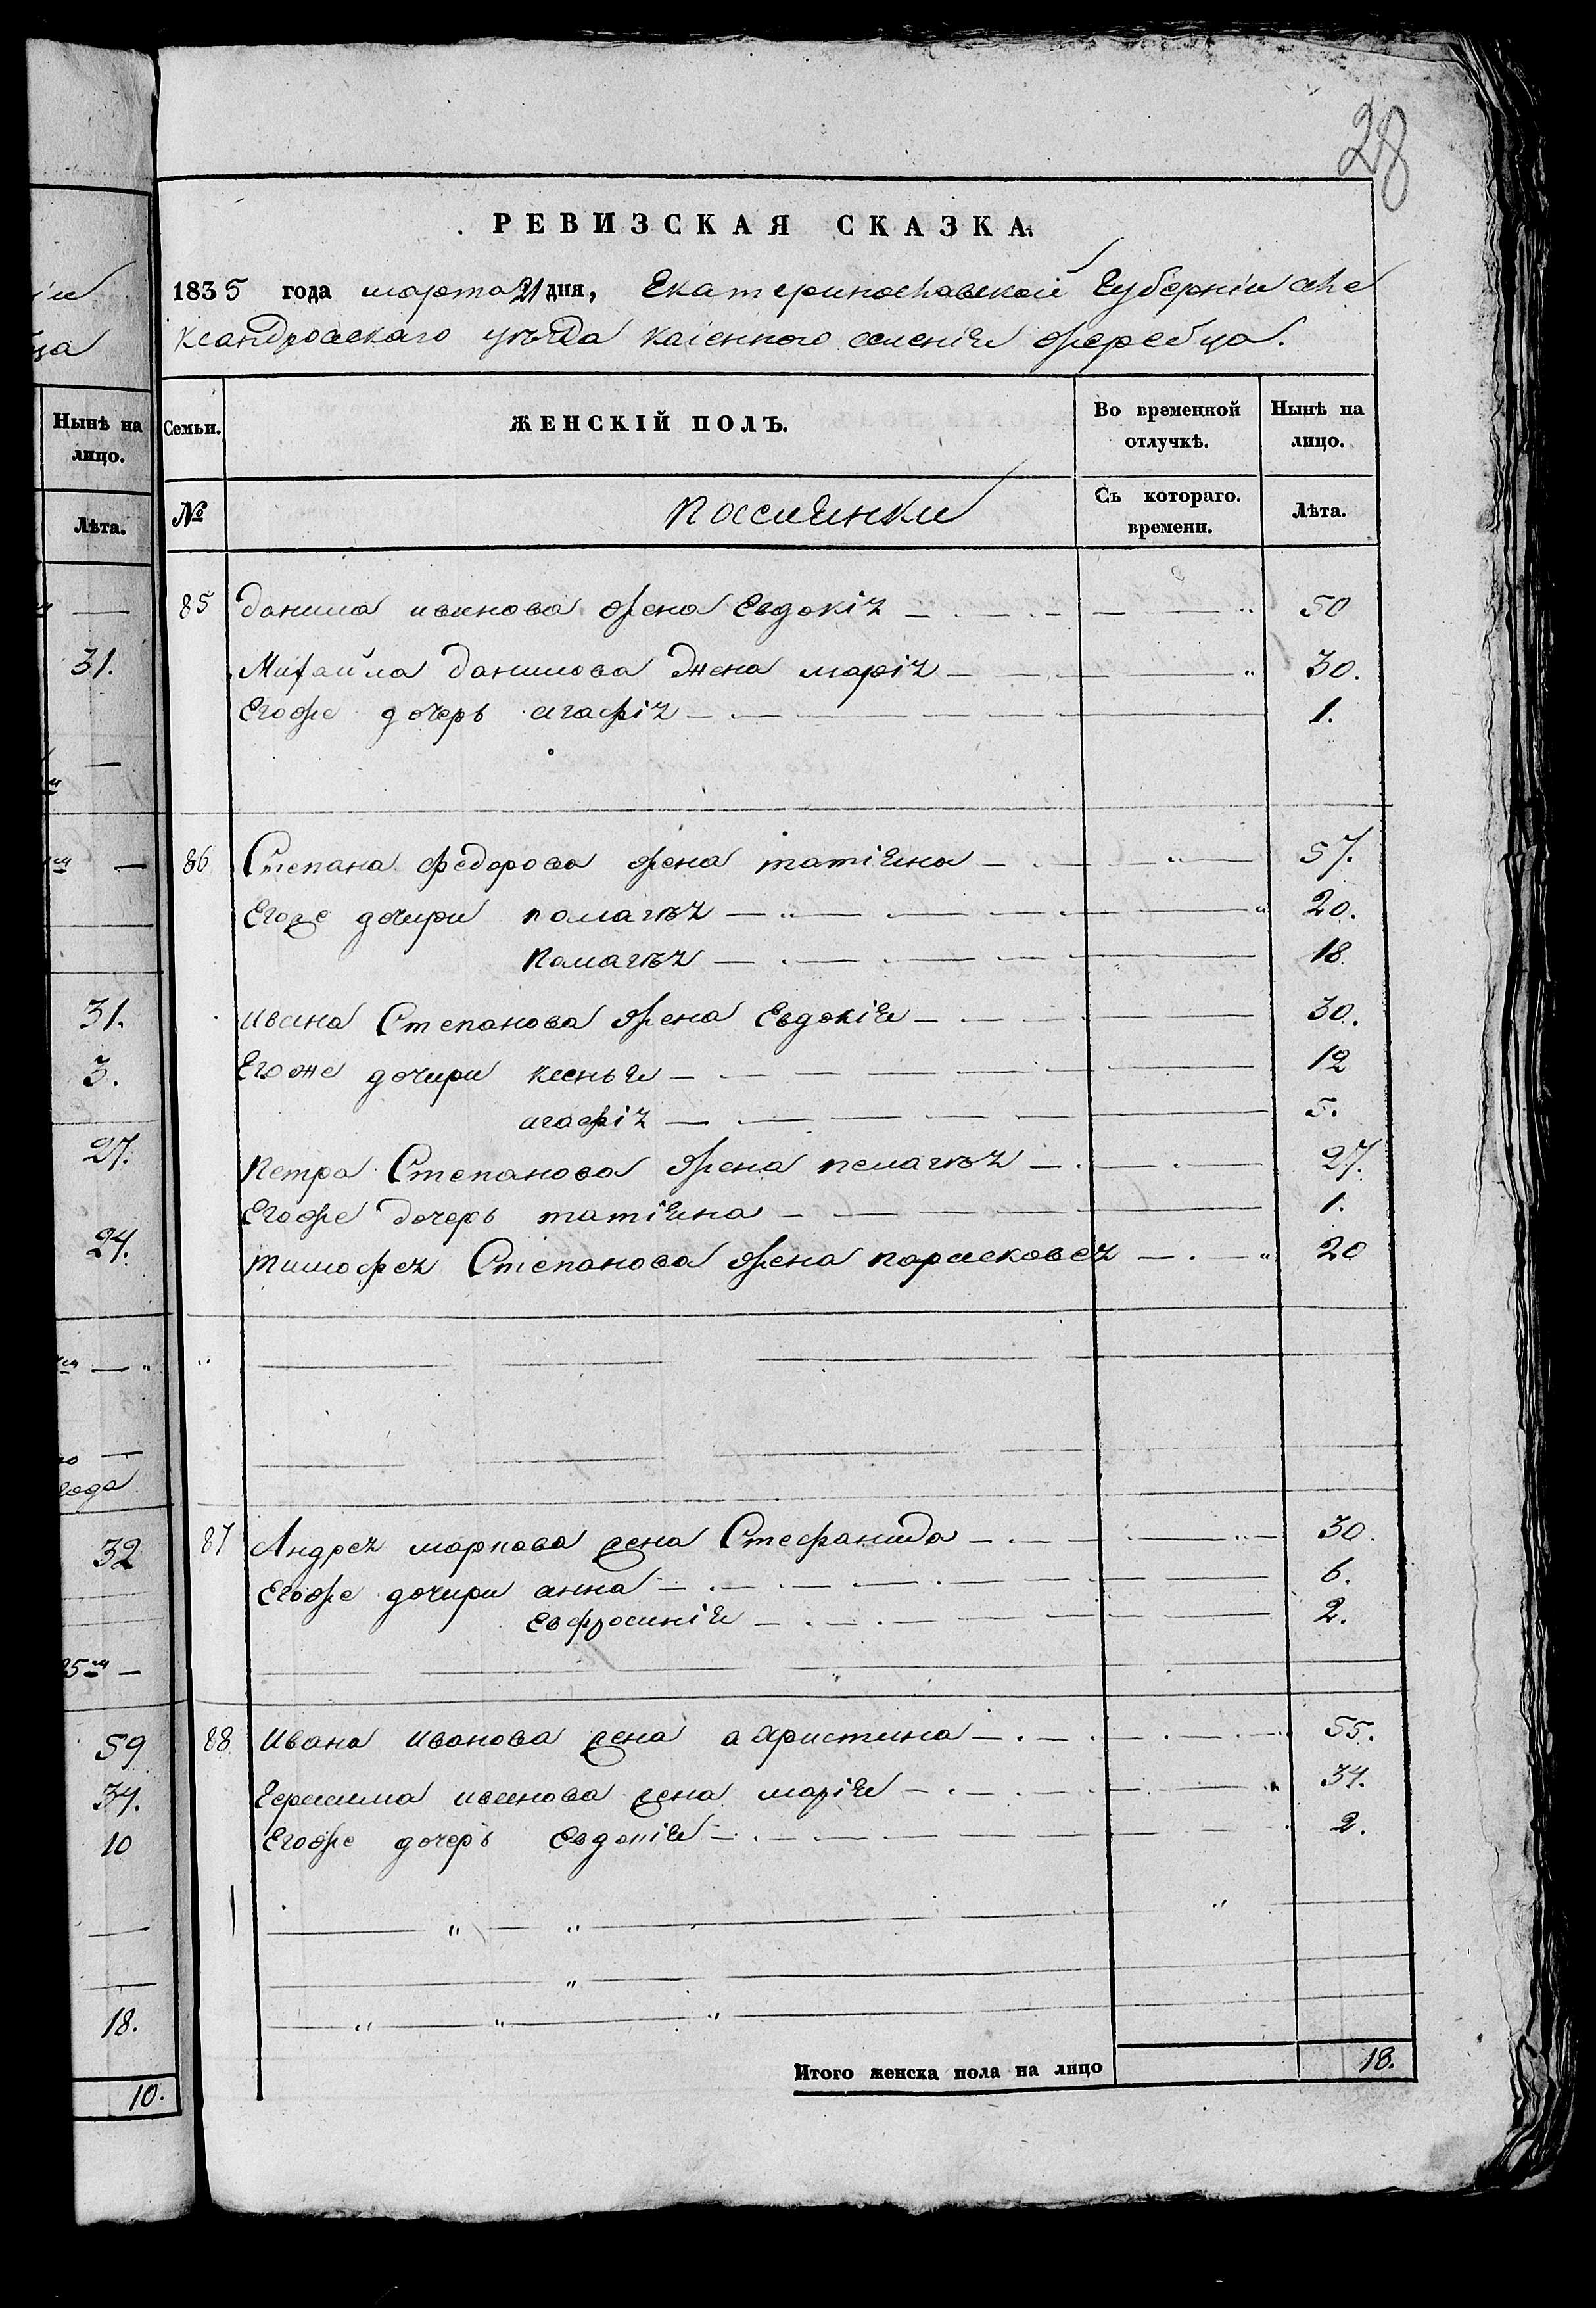 28
РЕВИЗСКАЯ СКАЗКА.
1835 года марта 21 дня, Екатеринославской Губерніи але
ксандровскаго уезда казенного селенія жеребца.
Семьи. ЖЕНСКІЙ ПОЛЪ. Во временной отлучкѣ. Нынѣ на лицо.
№ Россиянки Съ котораго времени. Лѣта.
85 данила иванова жена Евдокія 50
Михайла данилова жена марія 30.
Егоже дочерь агафія 1.
86 Степана Федорова жена татіяна 57.
Егоже дочири палагѣя 20.
Палагѣя 18
ивана Степанова жена Евдокія 30.
Егоже дочири ксенья 12
агафія 5.
Петра Степанова жена пелагѣя 27.
Егоже дочерь татіяна 1.
тимофея Степанова жена парасковея 20
87 Андрея маркова жена Стефанида 30.
Егоже дочири анна 6.
Евфросинія 2.
88 Ивана Иванова жена а христина 55.
Герасима иванова жена марія 34.
Егоже дочерь Евдокія 2.
Итого женска пола на лицо 18.
Нынѣ на
лицо.
Лѣта.
31.
31.
3.
27.
24.
года
32
59
34.
10
18.
10.